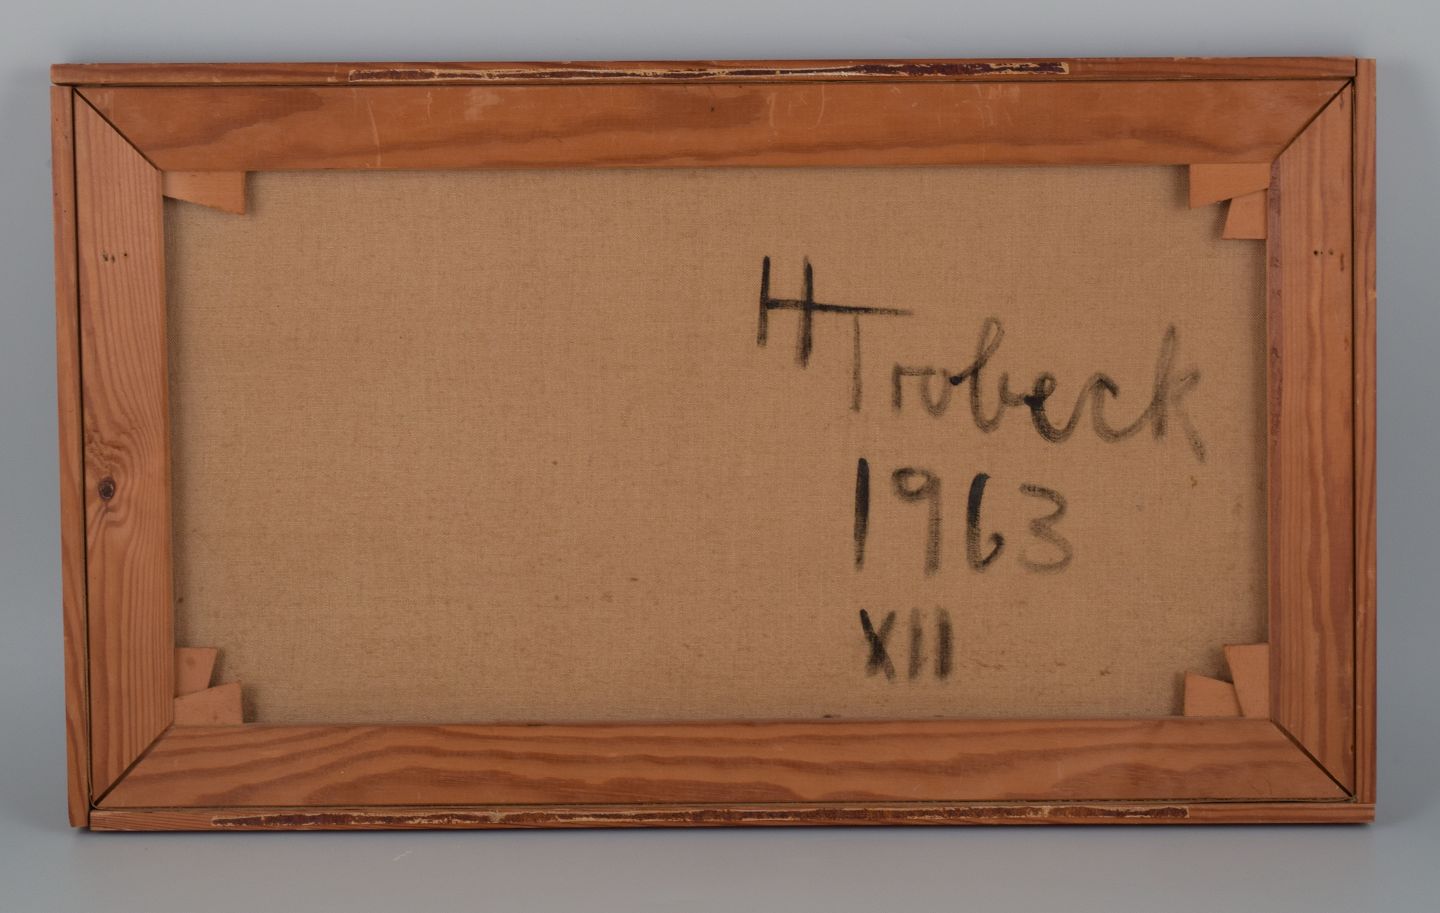 H Trobeck
1963
XII